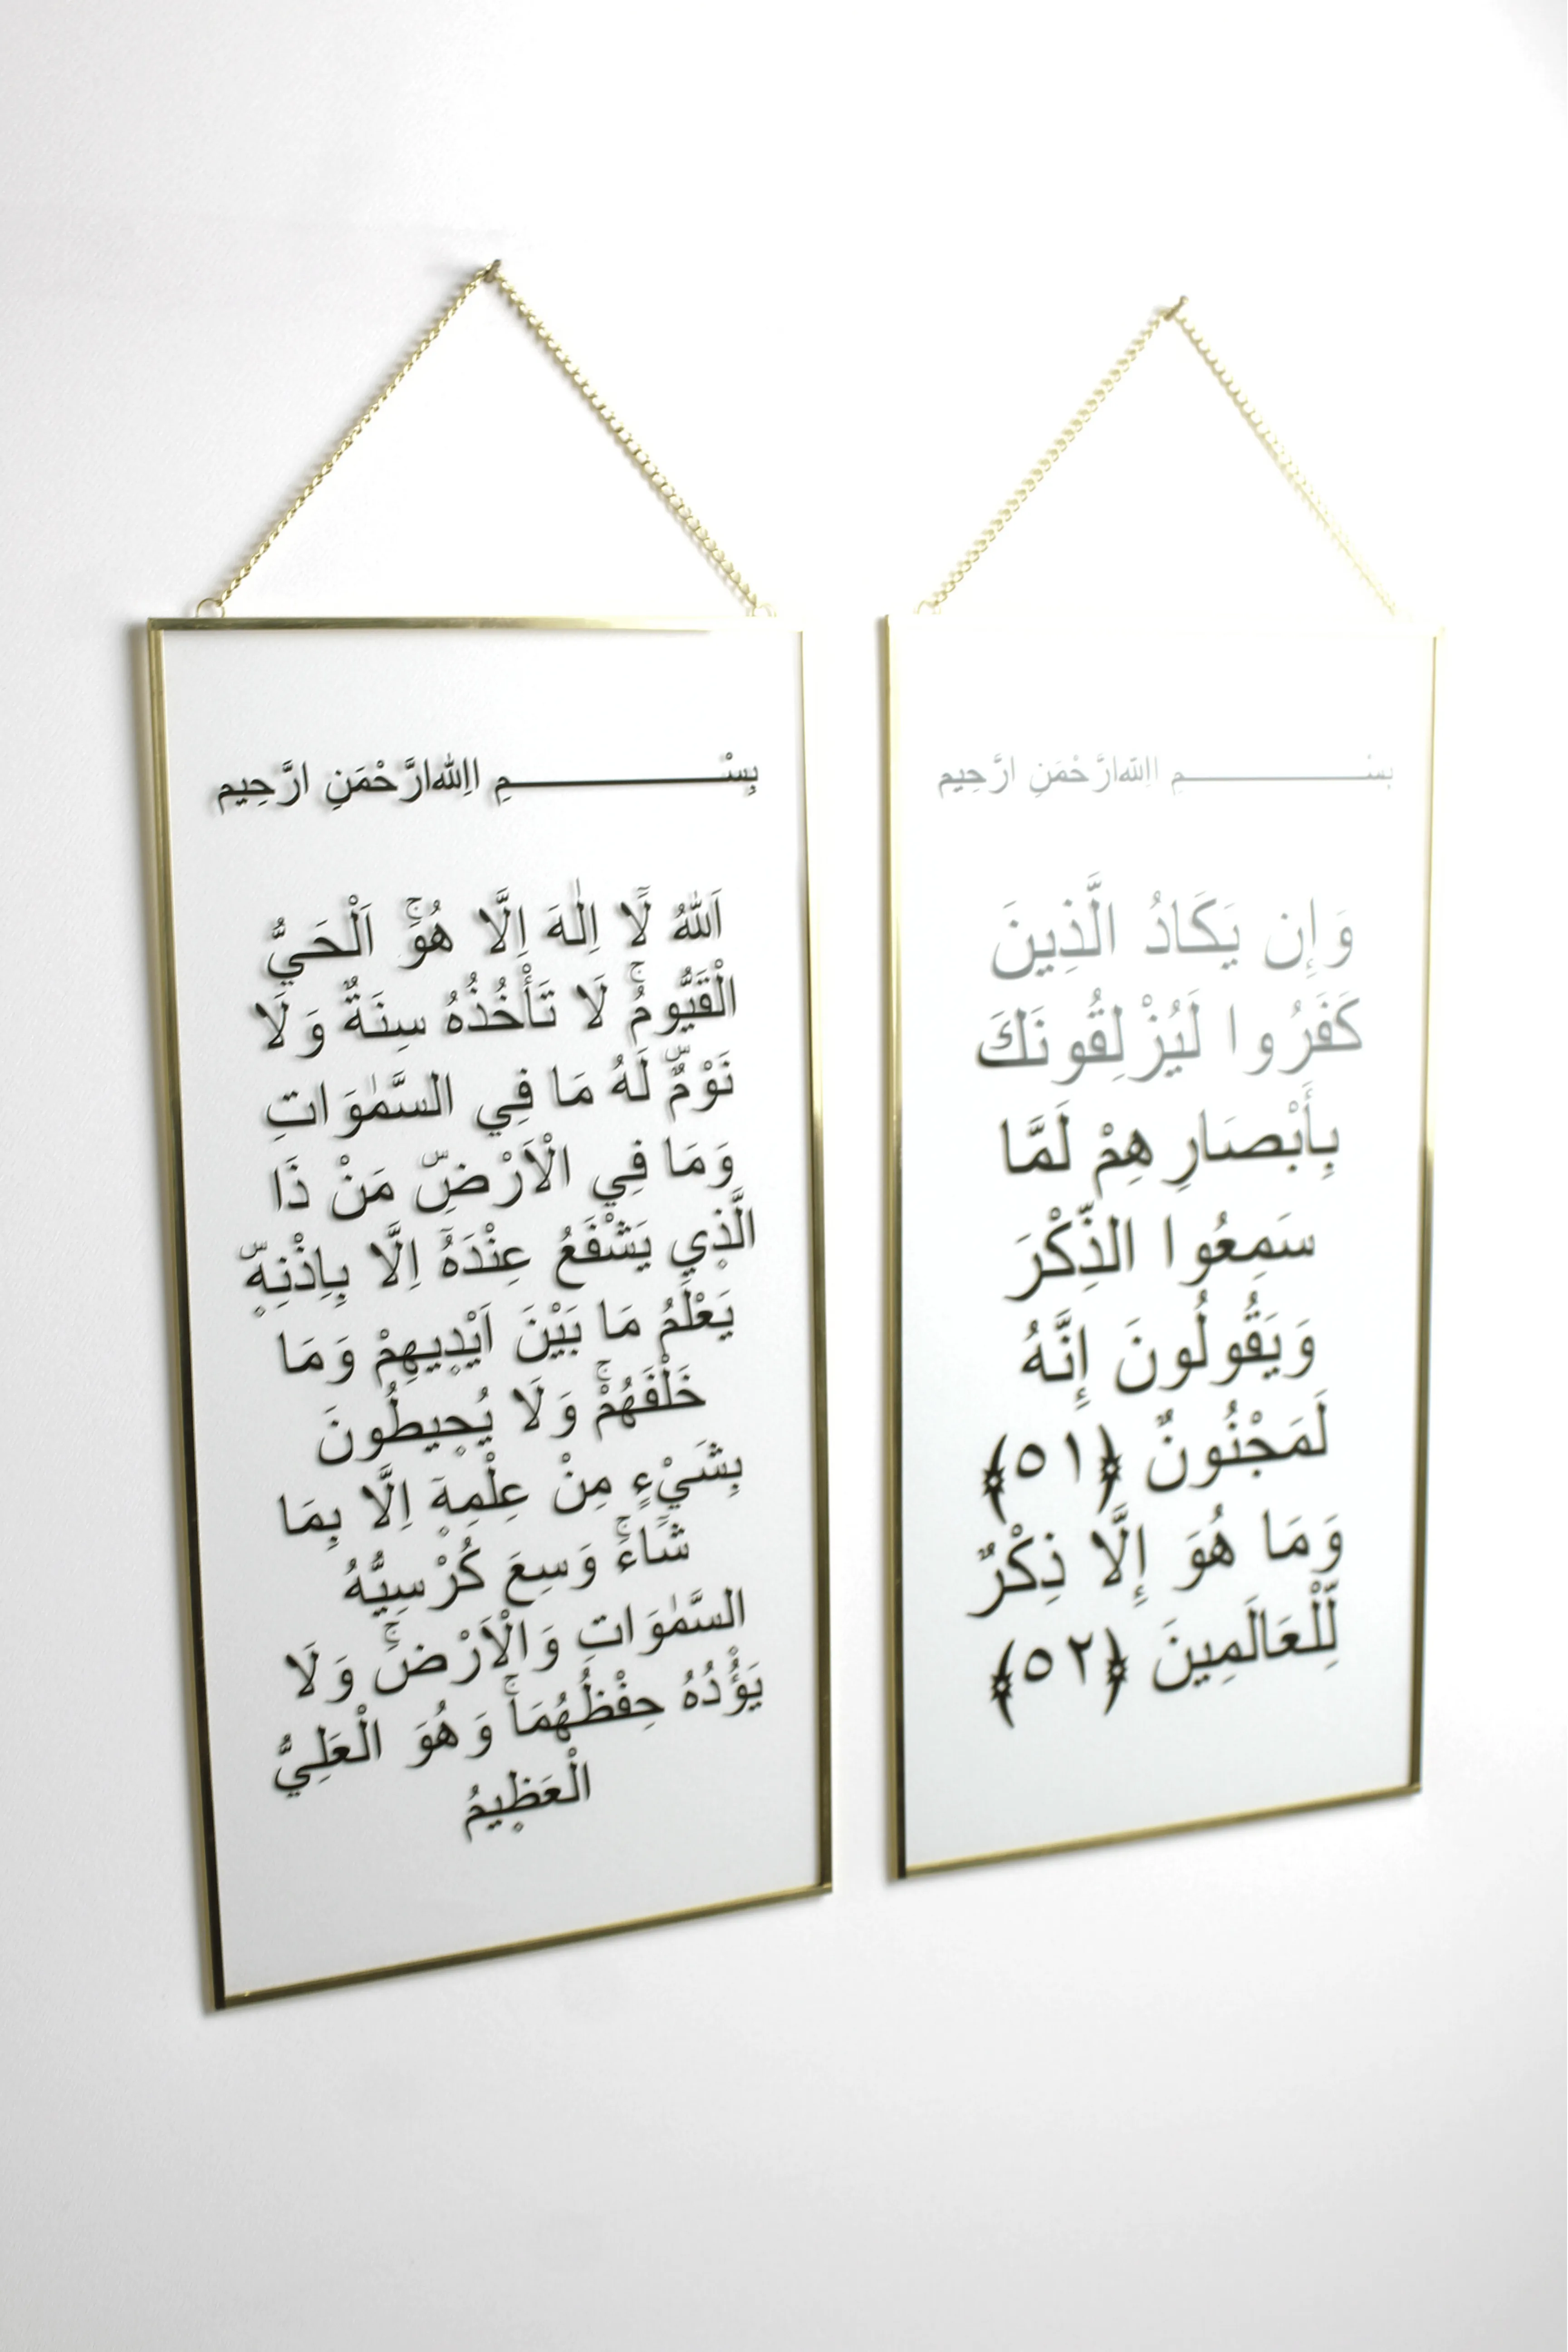 بِسْـــــــــــــــمِ االلهِ ارَّحْمَنِ ارَّحِيم
اَللّٰهُ لَٓا اِلٰهَ اِلَّا هُوَۚ اَلْحَيُّ
الْقَيُّومُۚ لَا تَأْخُذُهُ سِنَةٌ وَلَا
نَوْمٌۜ لَهُ مَا فِي السَّمٰوَاتِ
وَمَا فِي الْاَرْضِۜ مَنْ ذَا
الَّذ۪ي يَشْفَعُ عِنْدَهُٓ اِلَّا بِاِذْنِه۪ۜ
يَعْلَمُ مَا بَيْنَ اَيْد۪يهِمْ وَمَا
خَلْفَهُمْۚ وَلَا يُح۪يطُونَ
بِشَيْءٍ مِنْ عِلْمِه۪ٓ اِلَّا بِمَا
شَٓاءَۚ وَسِعَ كُرْسِيُّهُ
السَّمٰوَاتِ وَالْاَرْضَۚ وَلَا
يَؤُ۫دُهُ حِفْظُهُمَاۚ وَهُوَ الْعَلِيُّ
الْعَظ۪يمُ
بِسْـــــــــــــــمِ االلهِ ارَّحْمَنِ ارَّحِيم
وَإِن يَكَادُ الَّذِينَ
كَفَرُوا لَيُزْلِقُونَكَ
بِأَبْصَارِهِمْ لَمَّا
سَمِعُوا الذِّكْرَ
وَيَقُولُونَ إِنَّهُ
لَمَجْنُونٌ ﴿٥١﴾
وَمَا هُوَ إِلَّا ذِكْرٌ
لِّلْعَالَمِينَ ﴿٥٢﴾